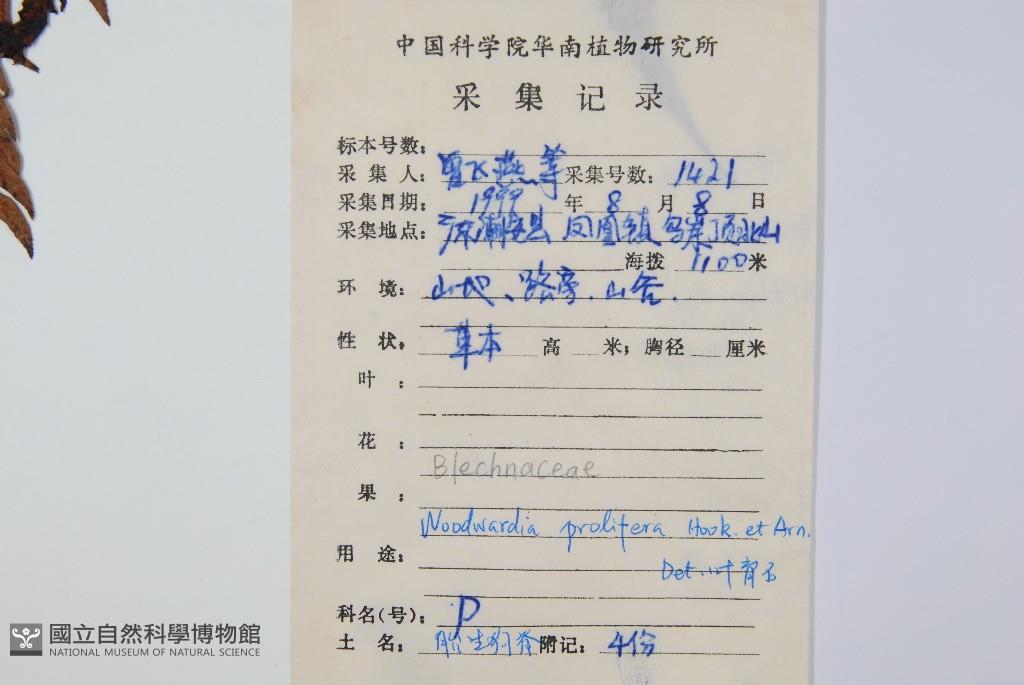 中国科学院华南植物研究所
采集记录
标本号数：
采集人：曾飞燕等 采集号数：1421
采集日期：1999年8月8日
采集地点：潮安县 凤凰镇 乌岽顶
海拨 1100米
环境：山地、路旁.山谷.
性状：草本 高 米；胸径 厘米
叶：
花：
Blechnaceae
果：
Woodwardia prolifera Hook. et Arn.
用途：
Det. 叶育石
科名(号)：P
土名：胎生狗脊 附记：4份
國立自然科學博物館
NATIONAL MUSEUM OF NATURAL SCIENCE